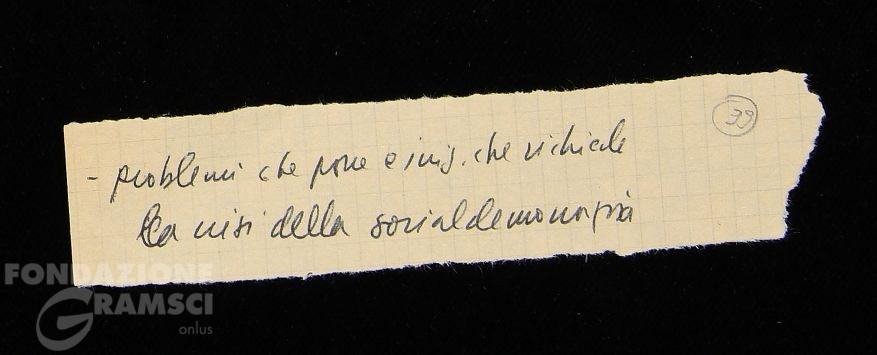 39
- problemi che pone e iniz. che richiede
la crisi della socialdemocrazia
FONDAZIONE
GRAMSCI
onlus